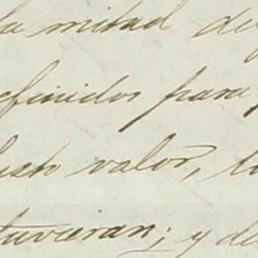 la mitad de
efinidos para
usto valor, lo
tuvieran; y de